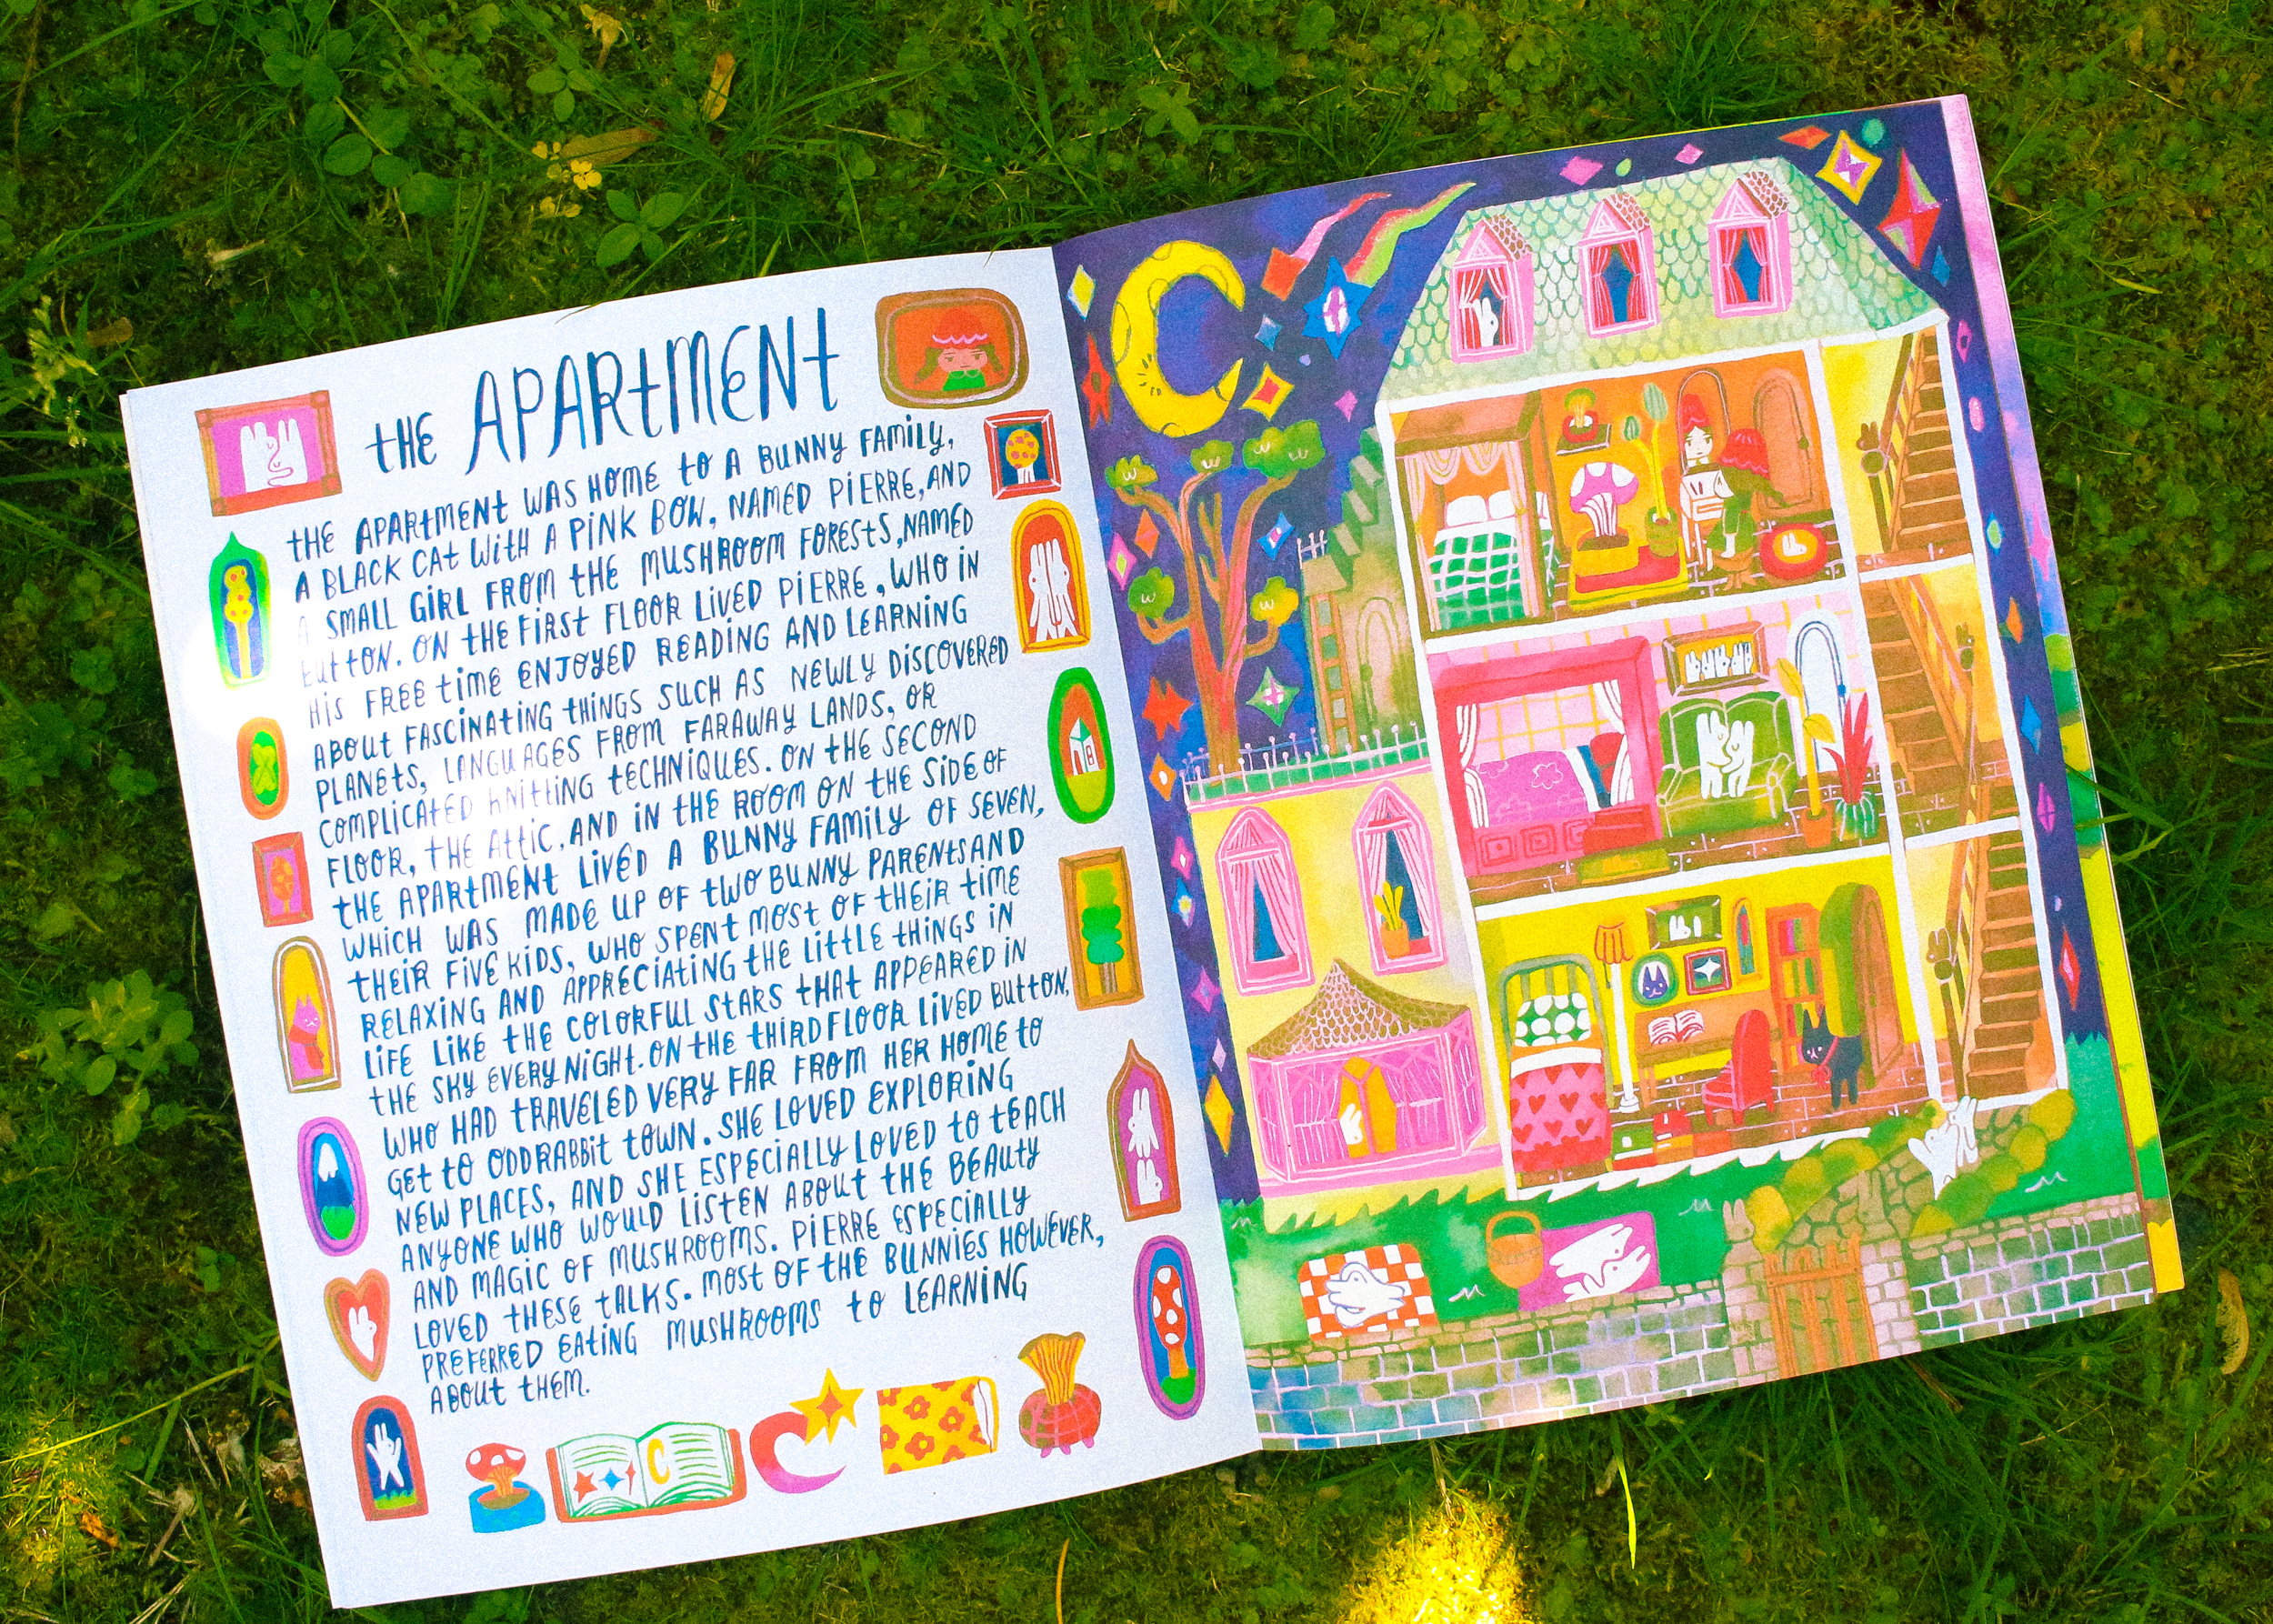 the APARtMENt
tHE APARTMENT WAS HOME tO A BUNNY FAMILY,
A BLACK CAt WitH A PiNK BOW, NAMED PiERRE, AND
A SMALL GiRL FROM tHE MUSHROOM FORESTS, NAMED
BUttON. ON tHE FIRST FLOOR LIVED PiERRE, WHO IN
HiS FREE tiME ENJOYED READING AND LEARNING
ABOUt FASCINAtiNG tHiNGS SUCH AS NEWLY DISCOVERED
PLANEtS, LANGUAGES FROM FARAWAY LANDS, OR
COMPLICAtED KNIttiNG tECHNiQUES. ON tHE SECOND
FLOOR, tHE AttiC, AND iN tHE ROOM ON tHE SiDE OF
tHE APARtMENt LiVED A BUNNY FAMILY OF SEVEN,
WHICH WAS MADE UP OF tWO BUNNY PARENtS AND
tHEiR FiVE KiDS, WHO SPENt MOSt OF tHEiR tiME
RELAXiNG AND APPRECiAtiNG tHE LittLE tHiNGS iN
LiFE LiKE tHE COLORFUL StARS tHAt APPEARED iN
tHE SKY EVERY NiGHt. ON tHE tHiRD FLOOR LiVED BUttON,
WHO HAD tRAVELED VERY FAR FROM HER HOME tO
GEt tO ODDRABBit tOWN. SHE LOVED EXPLORiNG
NEW PLACES, AND SHE ESPECiALLY LOVED tO tEACH
ANYONE WHO WOULD LiStEN ABOUt tHE BEAUtY
AND MAGiC OF MUSHROOMS. PiERRE ESPECiALLY
LOVED tHESE tALKS. MOSt OF tHE BUNNiES HOWEVER,
PREFERRED EAtiNG MUSHROOMS tO LEARNiNG
ABOUt tHEM.